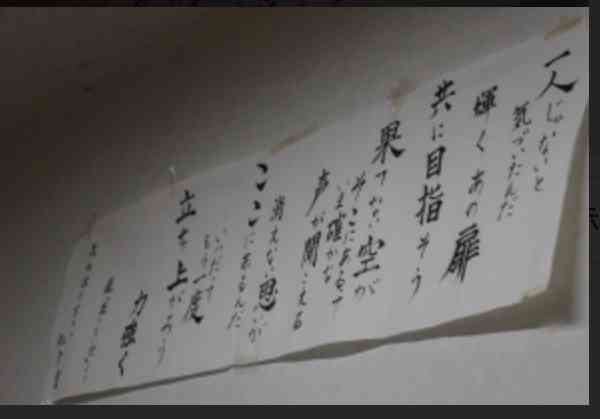 一人じゃないと
気づいたんだ
輝く あの扉
共に目指そう
果てない空が
そこにあるさ
いま確かな
声が聞こえる
消えない思いが
ここにあるんだ
いつだって
もう一度
立ち上がろう
力強く